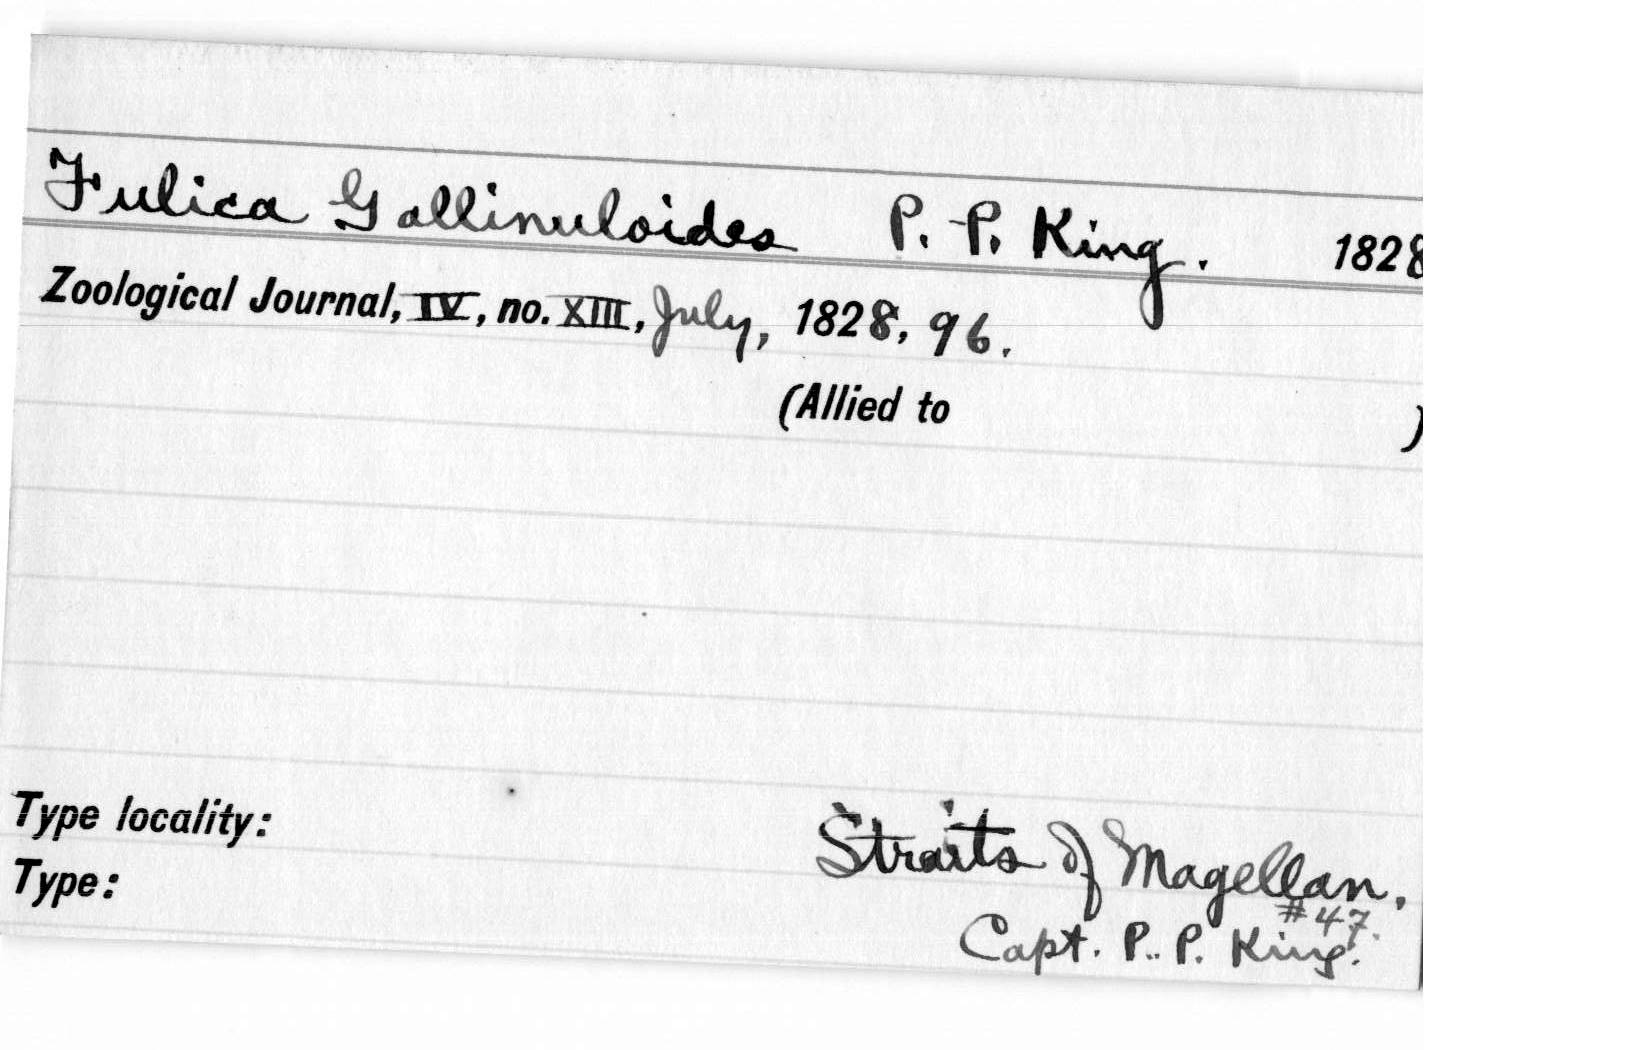 Fulica Gallinuloides P. P. King. 1828
Zoological Journal, IV, no. XIII, July, 1828, 96.
(Allied to )
Type locality: Straits of Magellan.
Type: #47.
Capt. P. P. King.